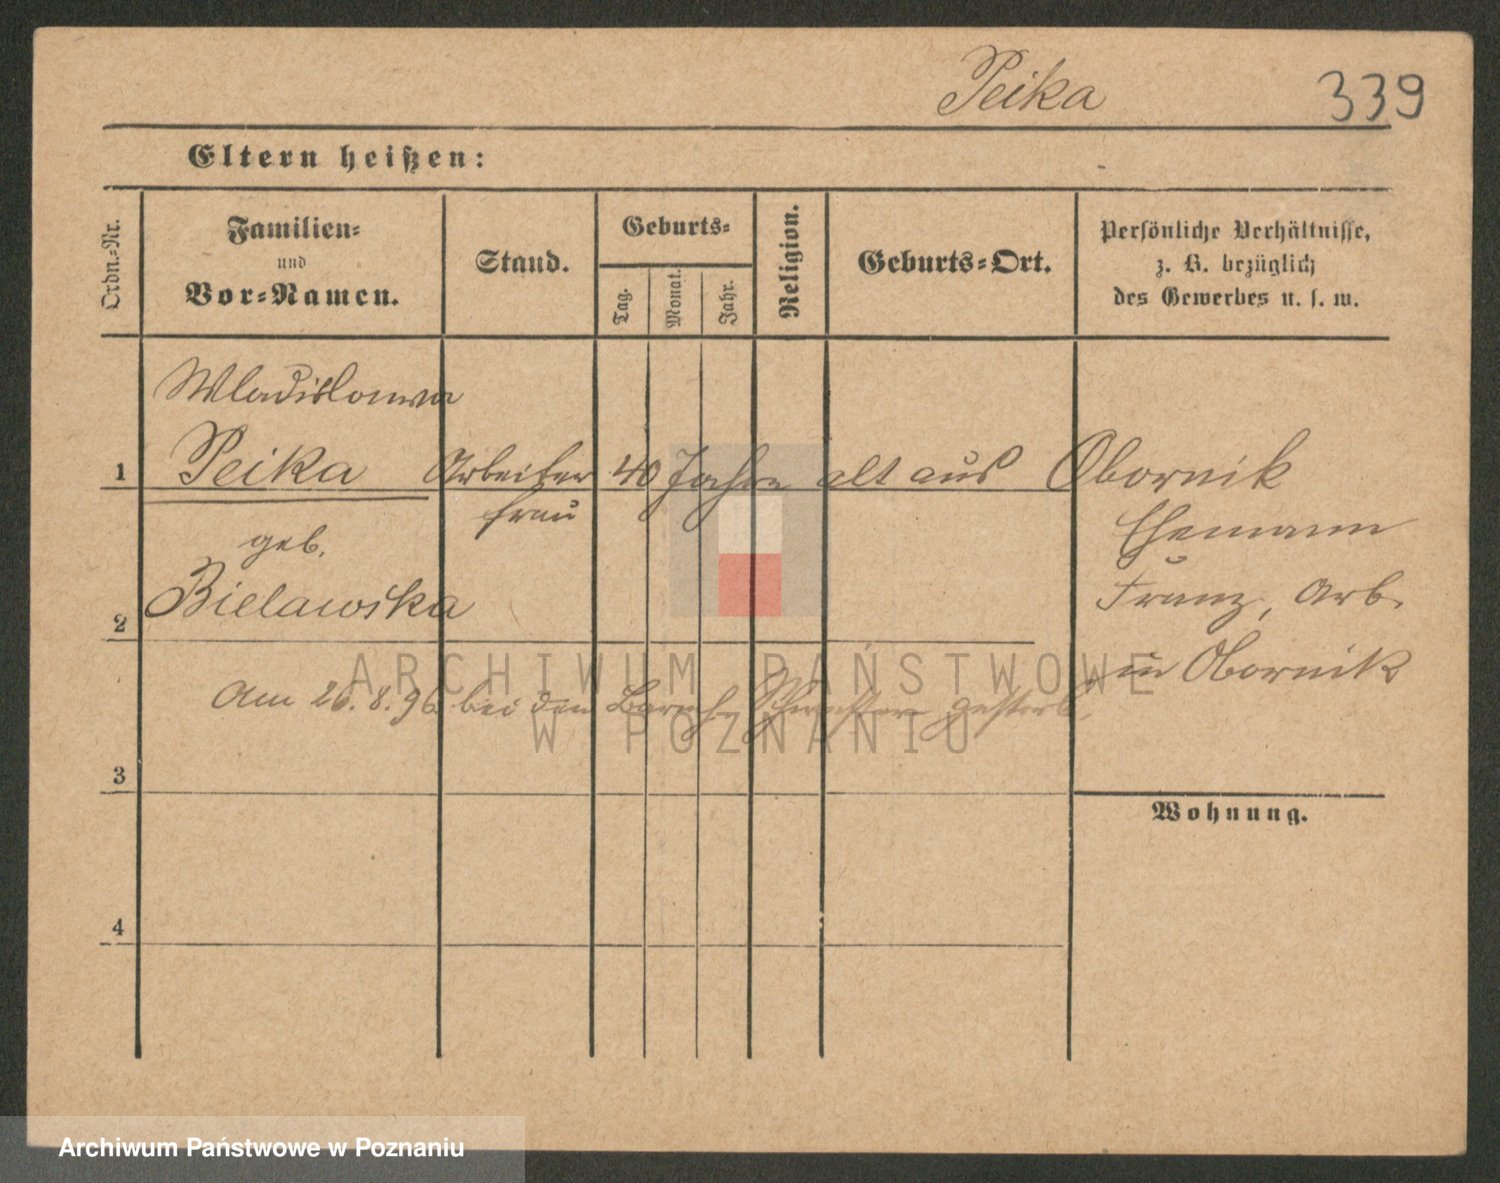 Peika 339
Eltern heißen:
Ordn.-Nr.
Familien-
und
Vor-Namen.
Stand.
Geburts-
Tag.
Monat.
Jahr.
Religion.
Geburts-Ort.
Persönliche Verhältnisse,
z. B. bezüglich
des Gewerbes u. s. w.
Wladislawa
1 Peika Arbeiter 40 Jahre alt aus Obornik
frau
geb.
Ehemann
2 Bielawska
Franz, Arb.
in Obornik
Am 26.8.96 bei den Barmh. Schwestern gestorb.
3
Wohnung.
4
ARCHIWUM PAŃSTWOWE
W POZNANIU
Archiwum Państwowe w Poznaniu